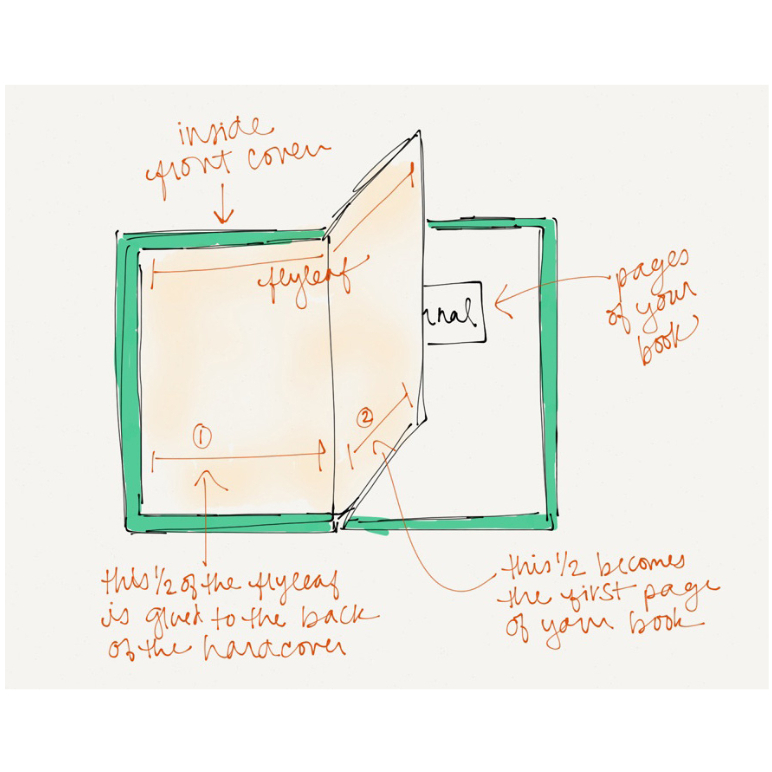 inside
front cover
flyleaf
pages
of your
book
rnal
①
②
this 1/2 of the flyleaf
is glued to the back
of the hardcover
this 1/2 becomes
the first page
of your book